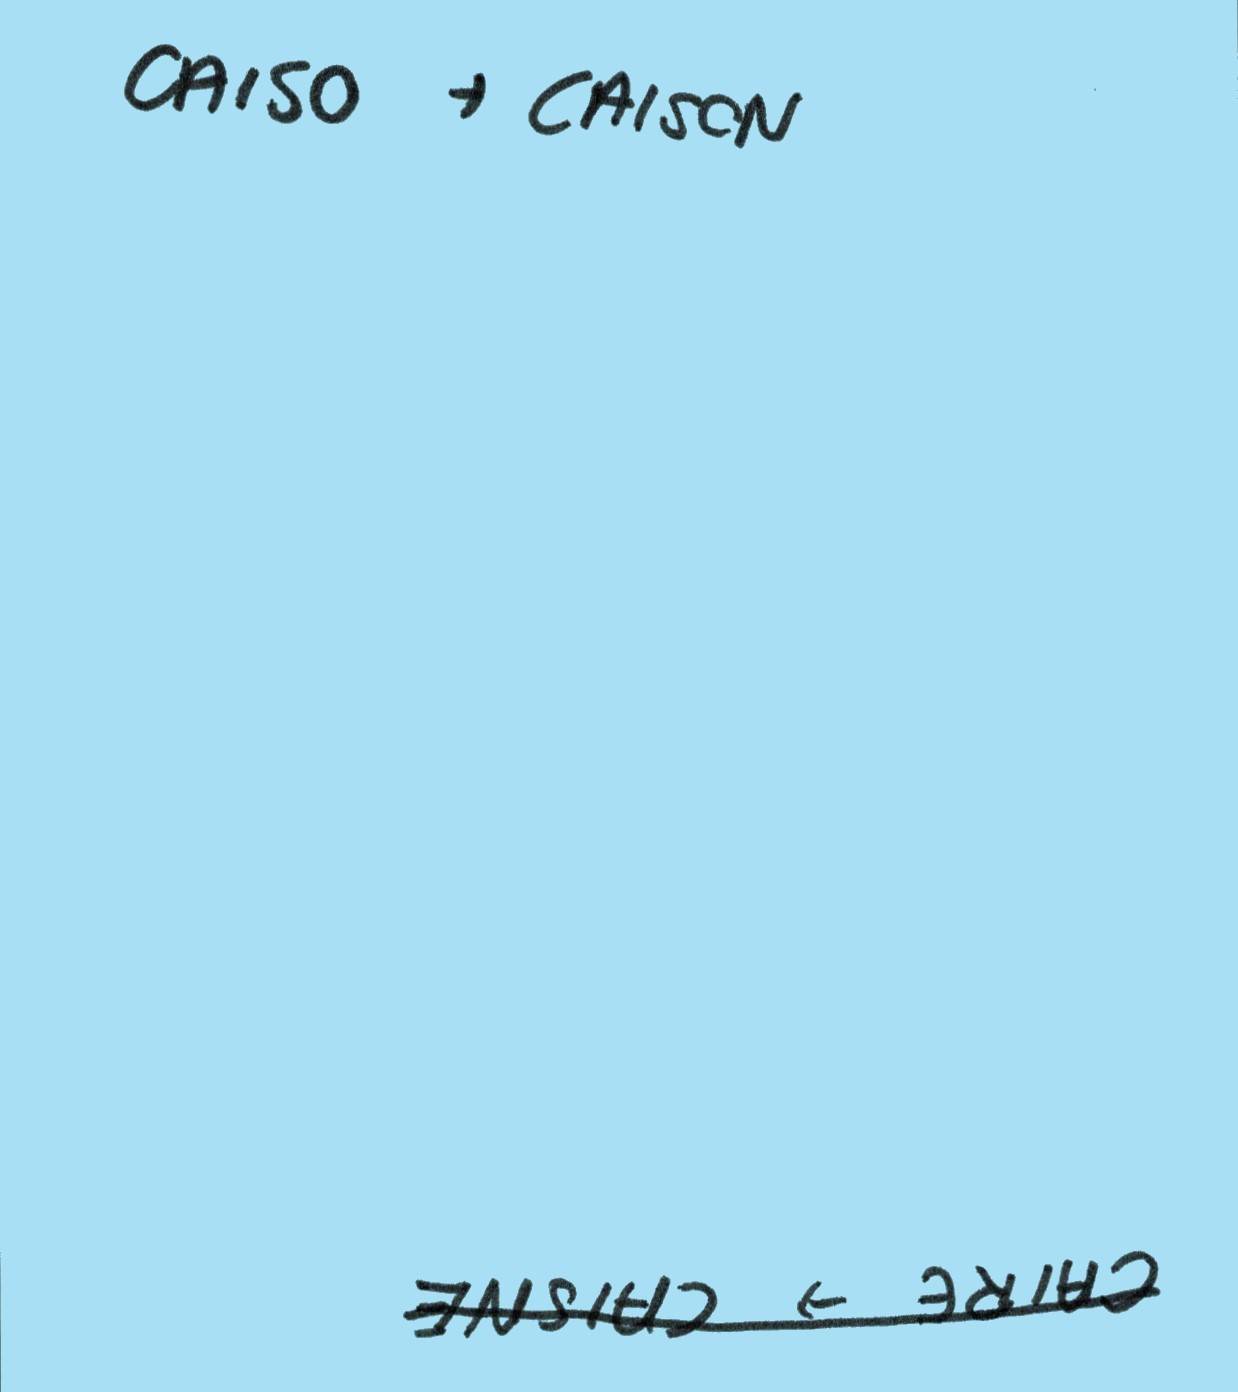 CAISO → CAISON
CAIRE → CAISNE